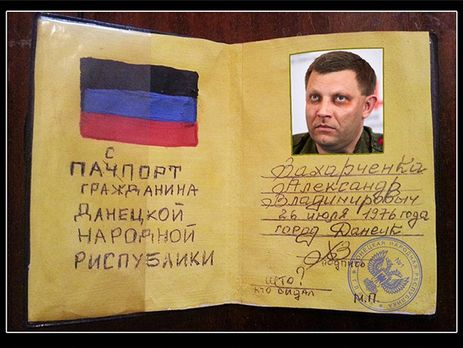 С
ПАЧПОРТ
ГРАЖДАНИНА
ДАНЕЦКОЙ
НАРОДНОЙ
РИСПУБЛИКИ
Захарченка
Александр
Владимировыч
26 июля 1976 года
горад Данецк
ХЗ
подпись
ШТО?
кто выдал
М.П.